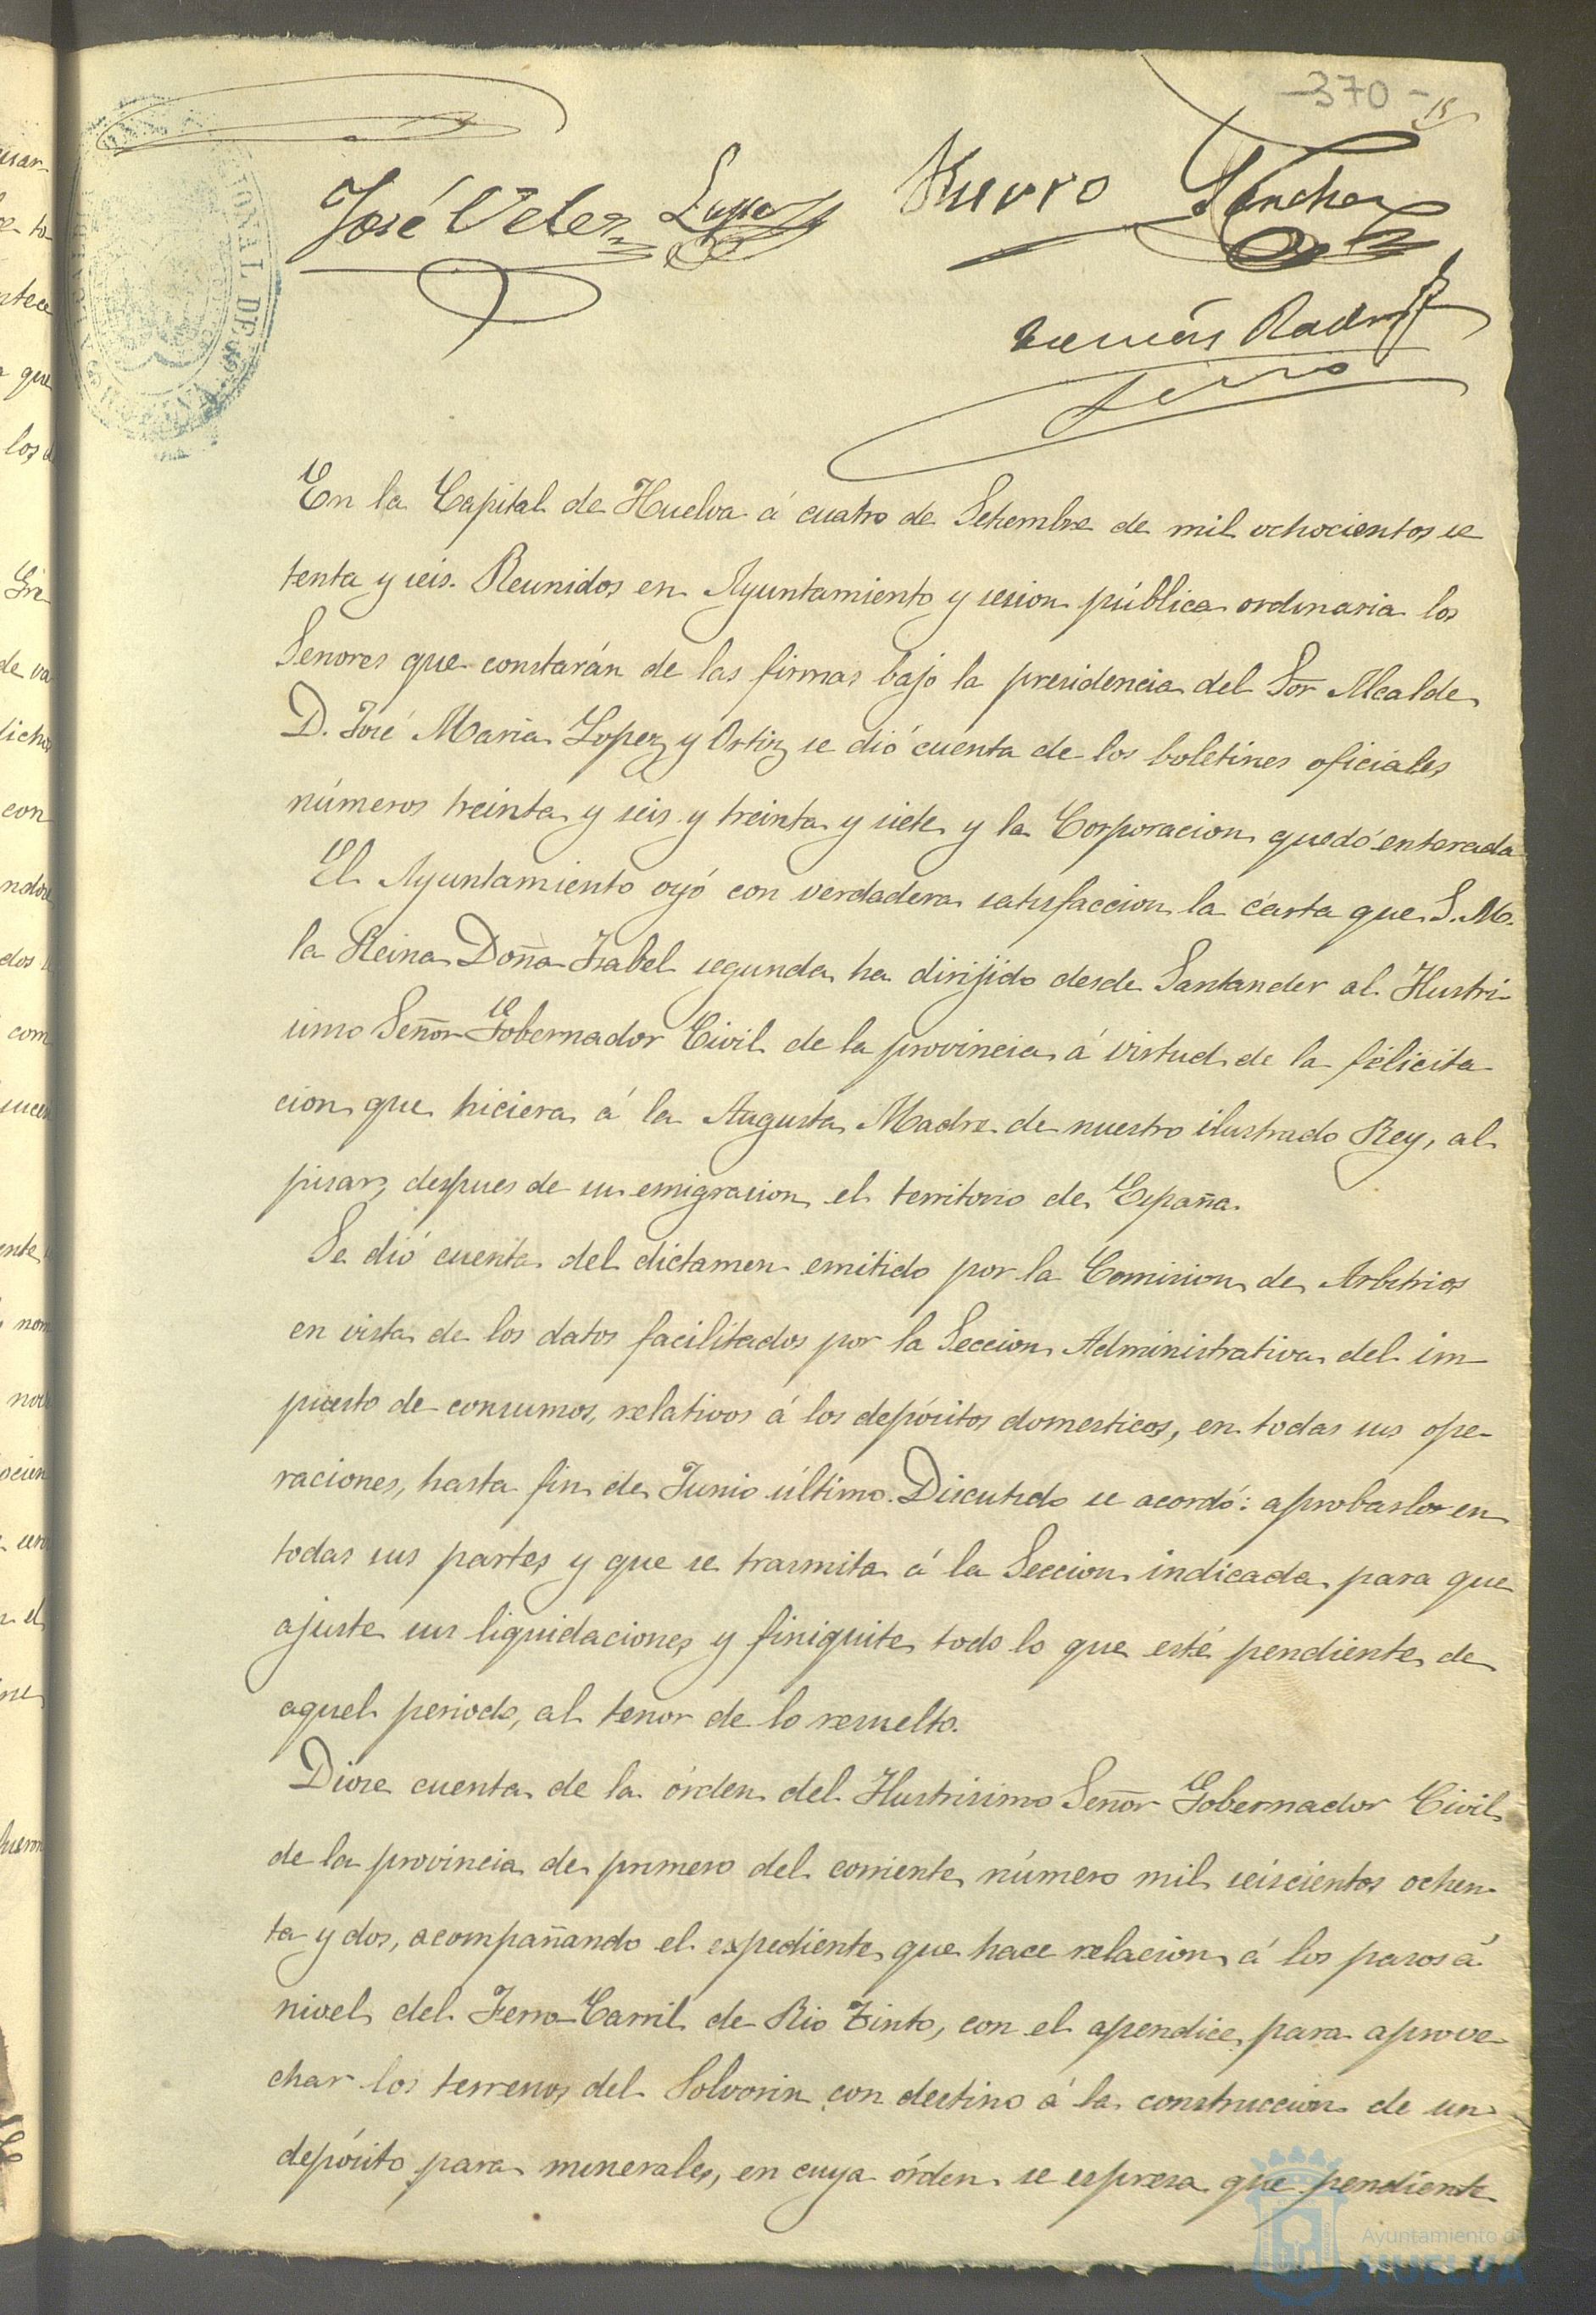 -370-
15
José Velez Lopez
Sanchez
En la Capital de Huelva á cuatro de Setiembre de mil ochocientos se
tenta y seis. Reunidos en Ayuntamiento y sesion pública ordinaria los
Señores que constarán de las firmas bajo la presidencia del Sor Alcalde
D. José Maria Lopez y Ortiz se dió cuenta de los boletines oficiales
números treinta y seis y treinta y siete y la Corporacion quedó enterada
El Ayuntamiento oyó con verdadera satisfaccion la carta que S.M.
la Reina Doña Isabel segunda ha dirijido desde Santander al Ilustri-
simo Señor Gobernador Civil de la provincia á virtud de la felicita
cion que hiciera á la Augusta Madre de nuestro ilustrado Rey, al
pisar, despues de su emigracion el territorio de España.
Se dió cuenta del dictamen emitido por la Comision de Arbitrios
en vista de los datos facilitados por la Seccion Administrativa del im-
puesto de consumos, relativos á los depósitos domesticos, en todas sus ope-
raciones, hasta fin de Junio último. Discutido se acordó: aprobarlo en
todas sus partes y que se trasmita á la Seccion indicada para que
ajuste sus liquidaciones y finiquite todo lo que esté pendiente de
aquel periodo, al tenor de lo resuelto.
Diose cuenta de la órden del Ilustrisimo Señor Gobernador Civil
de la provincia de primero del corriente número mil seiscientos ochen-
ta y dos, acompañando el expediente que hace relacion á los pasos á
nivel del Ferro-Carril de Rio Tinto, con el apendice para aprove-
char los terrenos del Polvorin con destino á la construccion de un
depósito para minerales, en cuya órden se espresa que pendiente
Ayuntamiento de
HUELVA